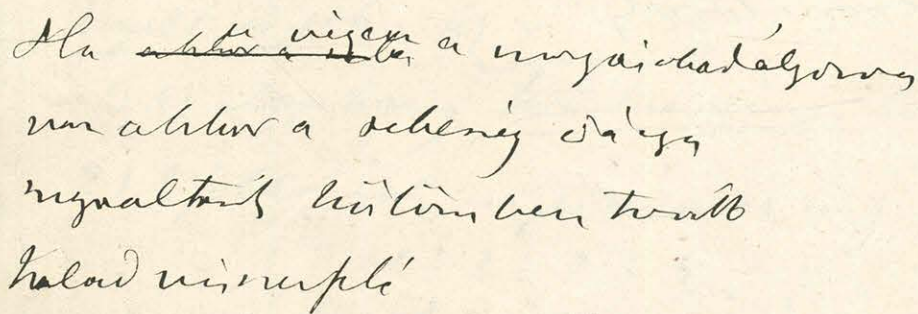 Ha a végén a mozgás akadályozva
van akkor a sebesség iránya
megváltozik különben tovább
halad visszafelé